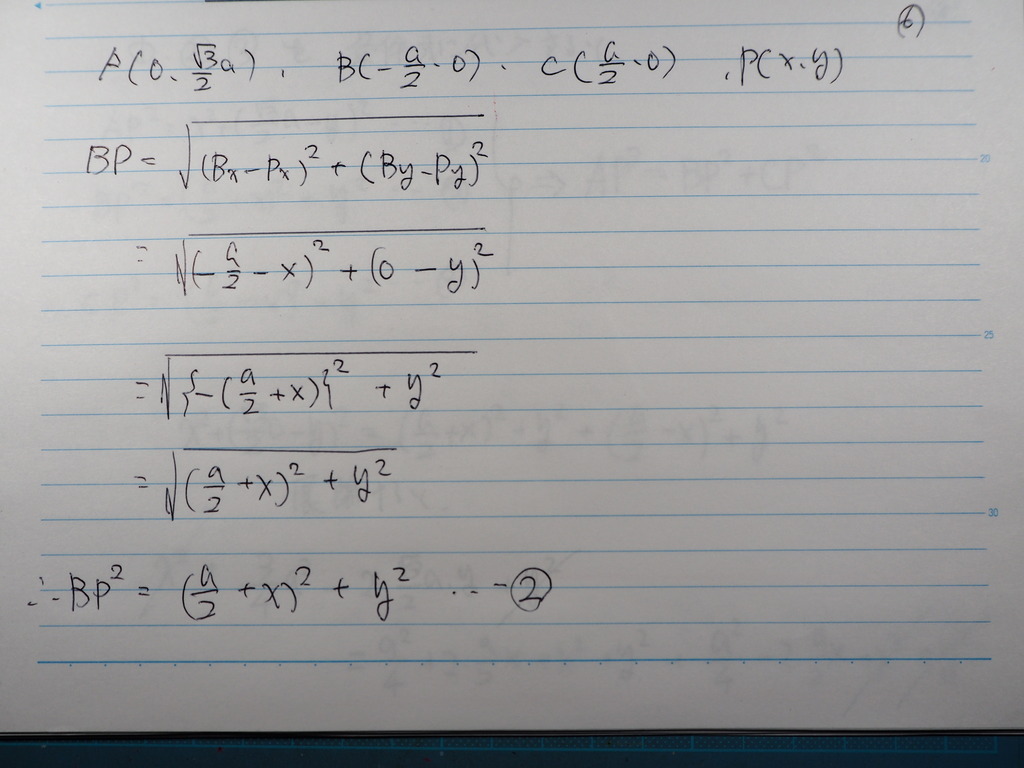 ⑥
A(0, √3/2 a), B(-a/2, 0), C(a/2, 0), P(x, y)
BP = √((Bx-Px)² + (By-Py)²)
20
= √((-a/2 - x)² + (0 - y)²)
25
= √({-(a/2 + x)}² + y²)
= √((a/2 + x)² + y²)
30
∴ BP² = (a/2 + x)² + y² ... -②